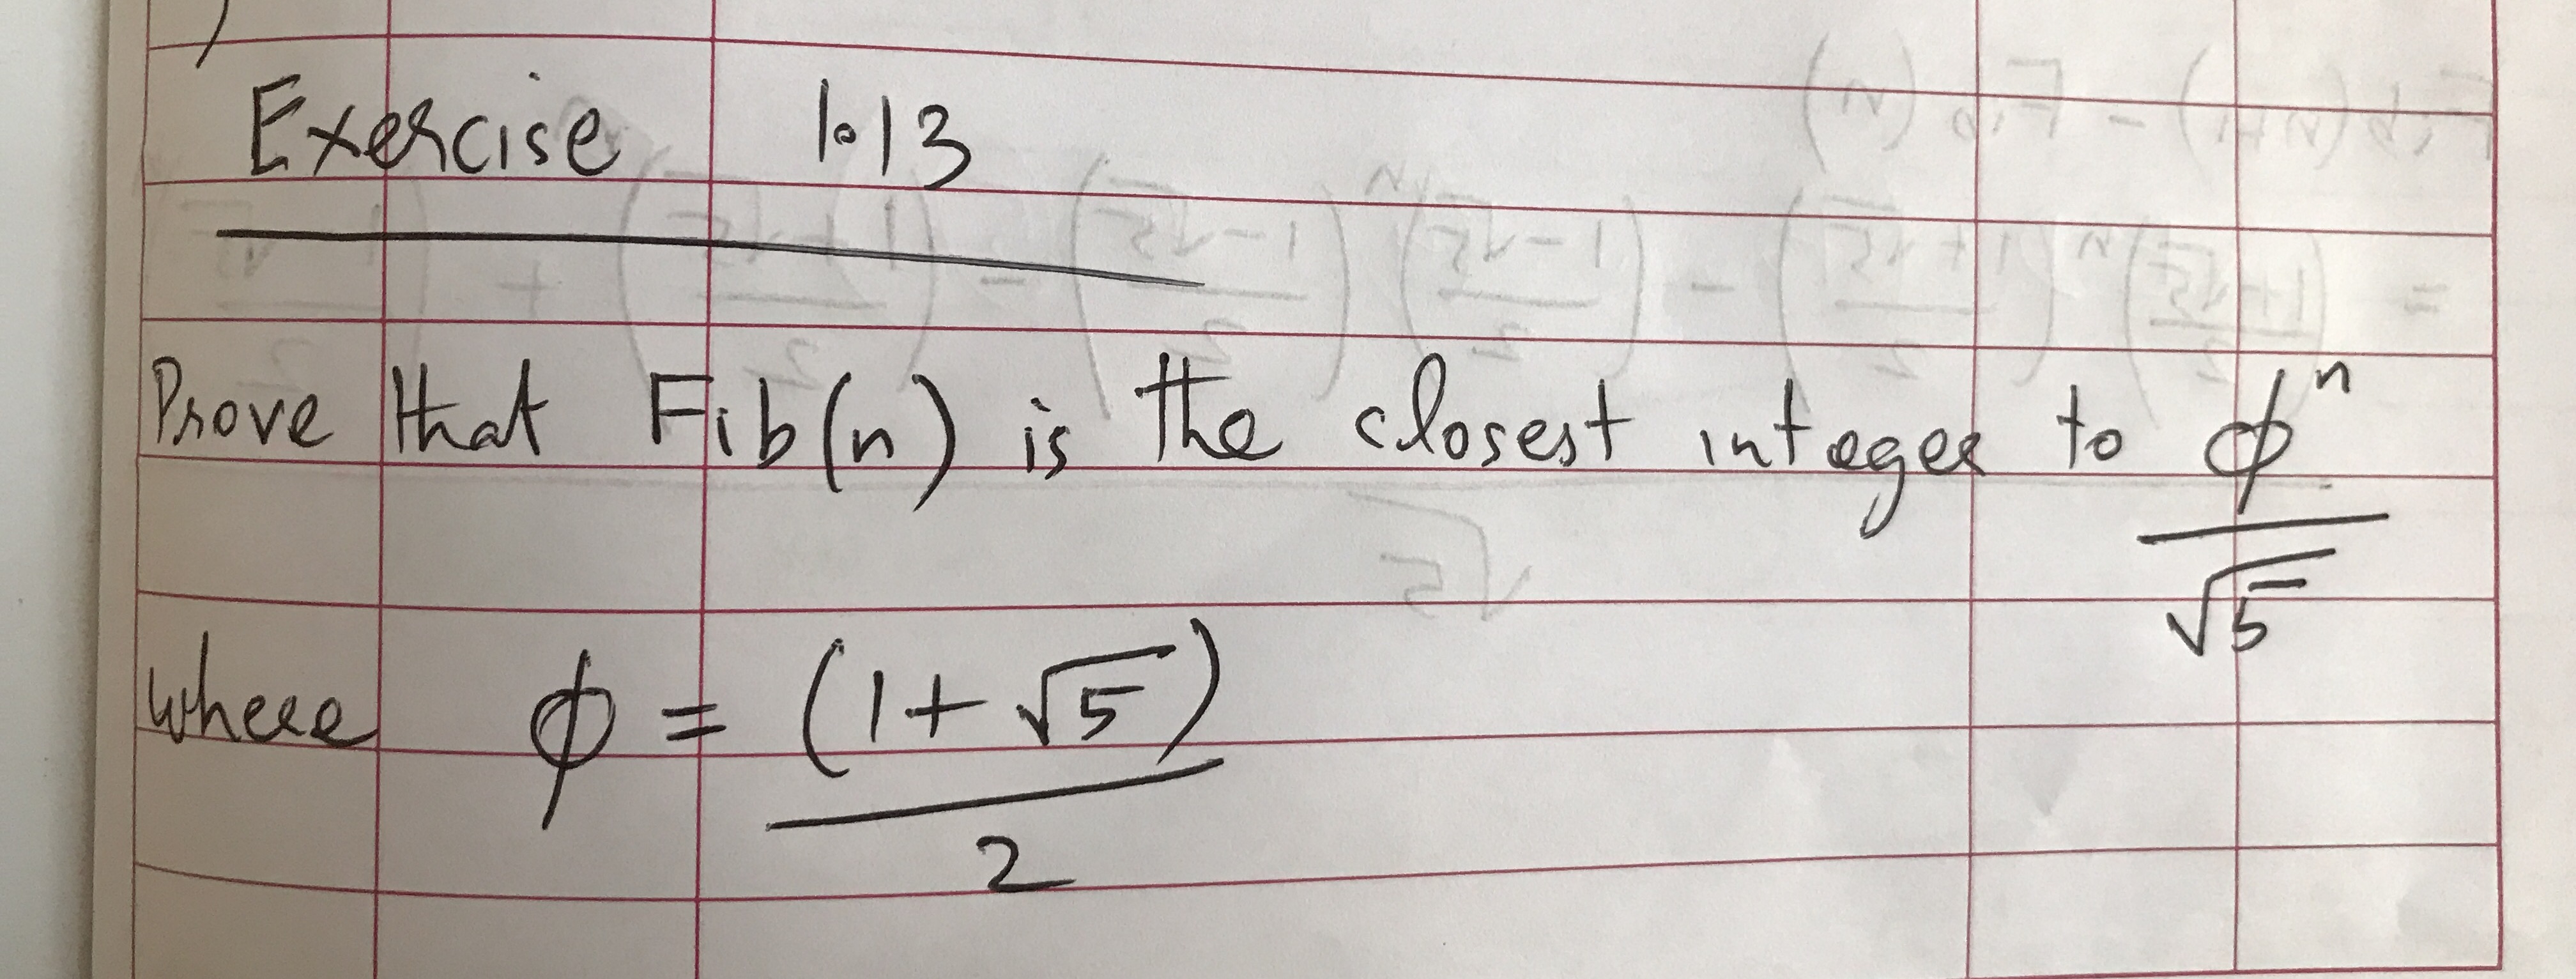 Exercise 1.13
Prove that Fib(n) is the closest integer to ϕ^n / √5
where ϕ = (1 + √5) / 2